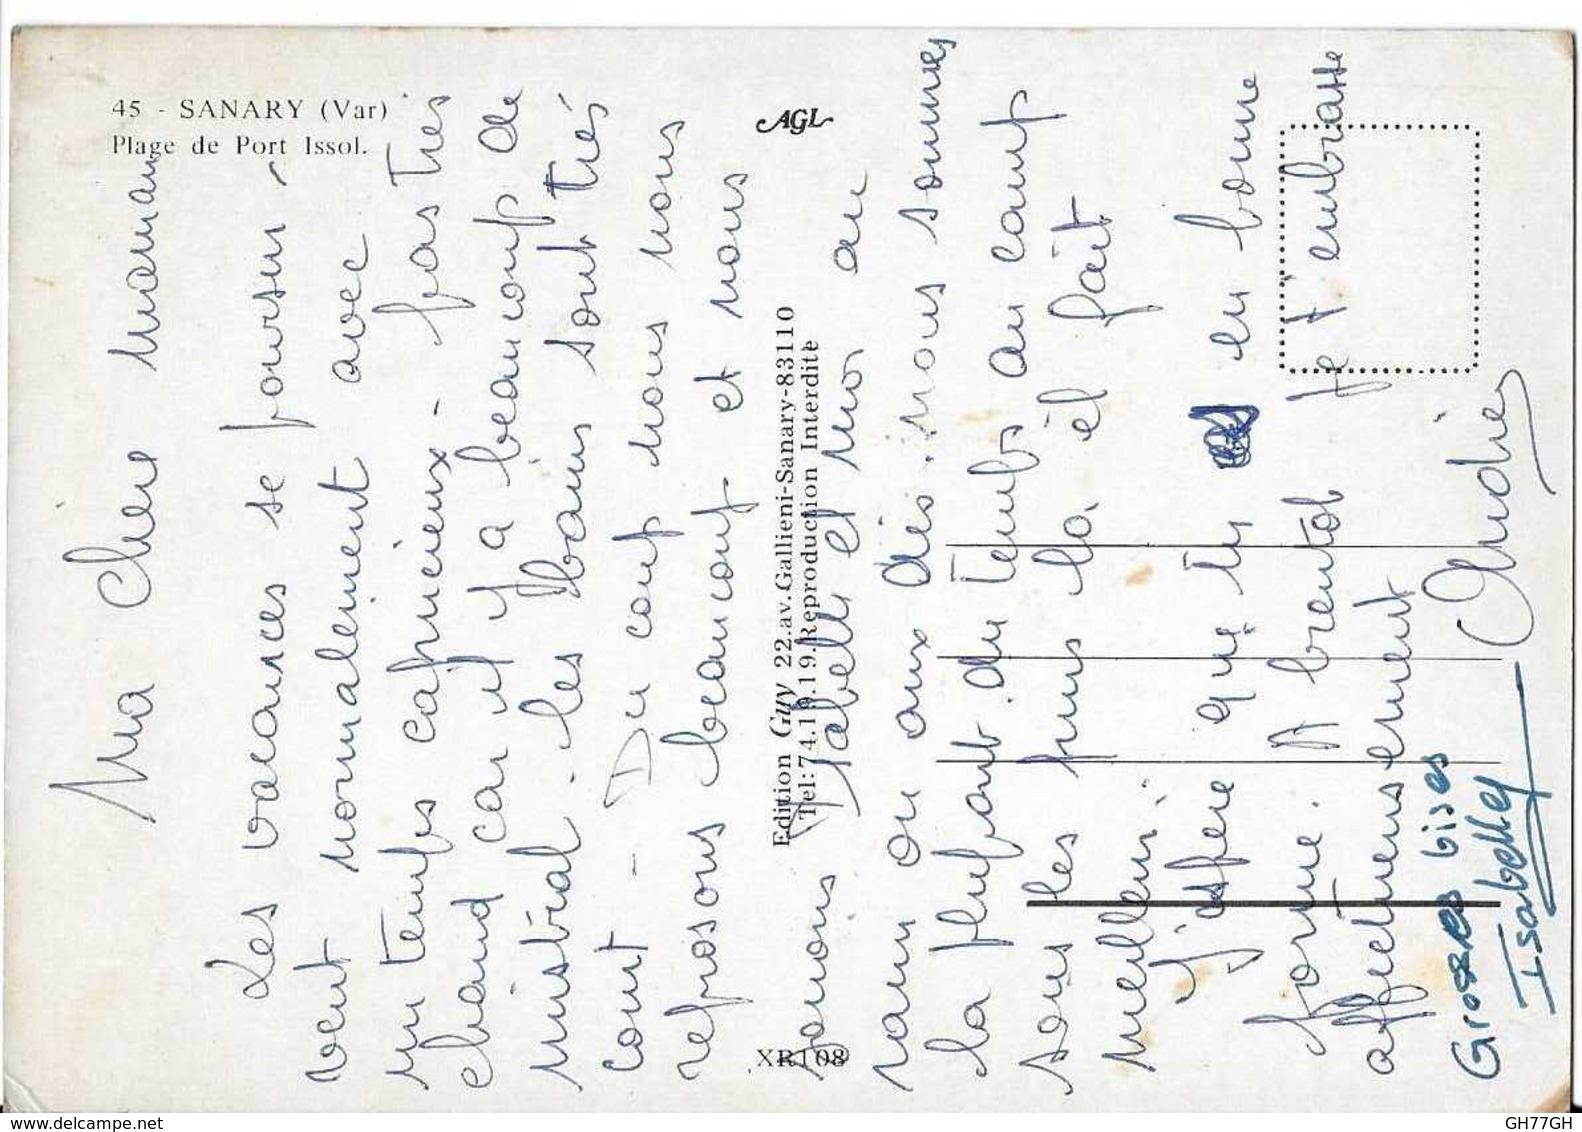 45 - SANARY (Var)
Plage de Port Issol.
AGL
Edition Guy 22.av.Gallieni-Sanary-83110
Tel:74.19.19.Reproduction Interdite
XR108
Ma chère maman
Les vacances se poursui-
vent normalement avec
un temps capricieux - pas très
chaud car il y a beaucoup de
mistral. les bains sont très
court - Du coup nous nous
reposons beaucoup. et nous
jouons Isabelle et moi au
rami ou aux dés. nous sommes
la plupart du temps au camp
sous les pins là él fait
meilleur.
J'espère que tu es en bonne
forme. A bientôt je t'embrasse
affectueusement
Andrée
Grosses bises
Isabelle
delcampe.net
GH77GH